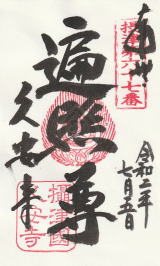 奉拝
摂津第六十七番
遍照尊
久安寺
令和二年
七月五日
摂津国
久安寺